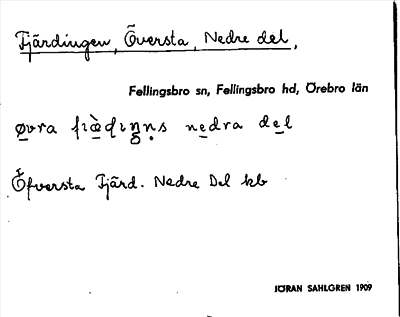 Fjärdingen, Översta, Nedre del,
Fellingsbro sn, Fellingsbro hd, Örebro län
nedra del
Öfversta Fjärd. Nedre Del kb
JÖRAN SAHLGREN 1909